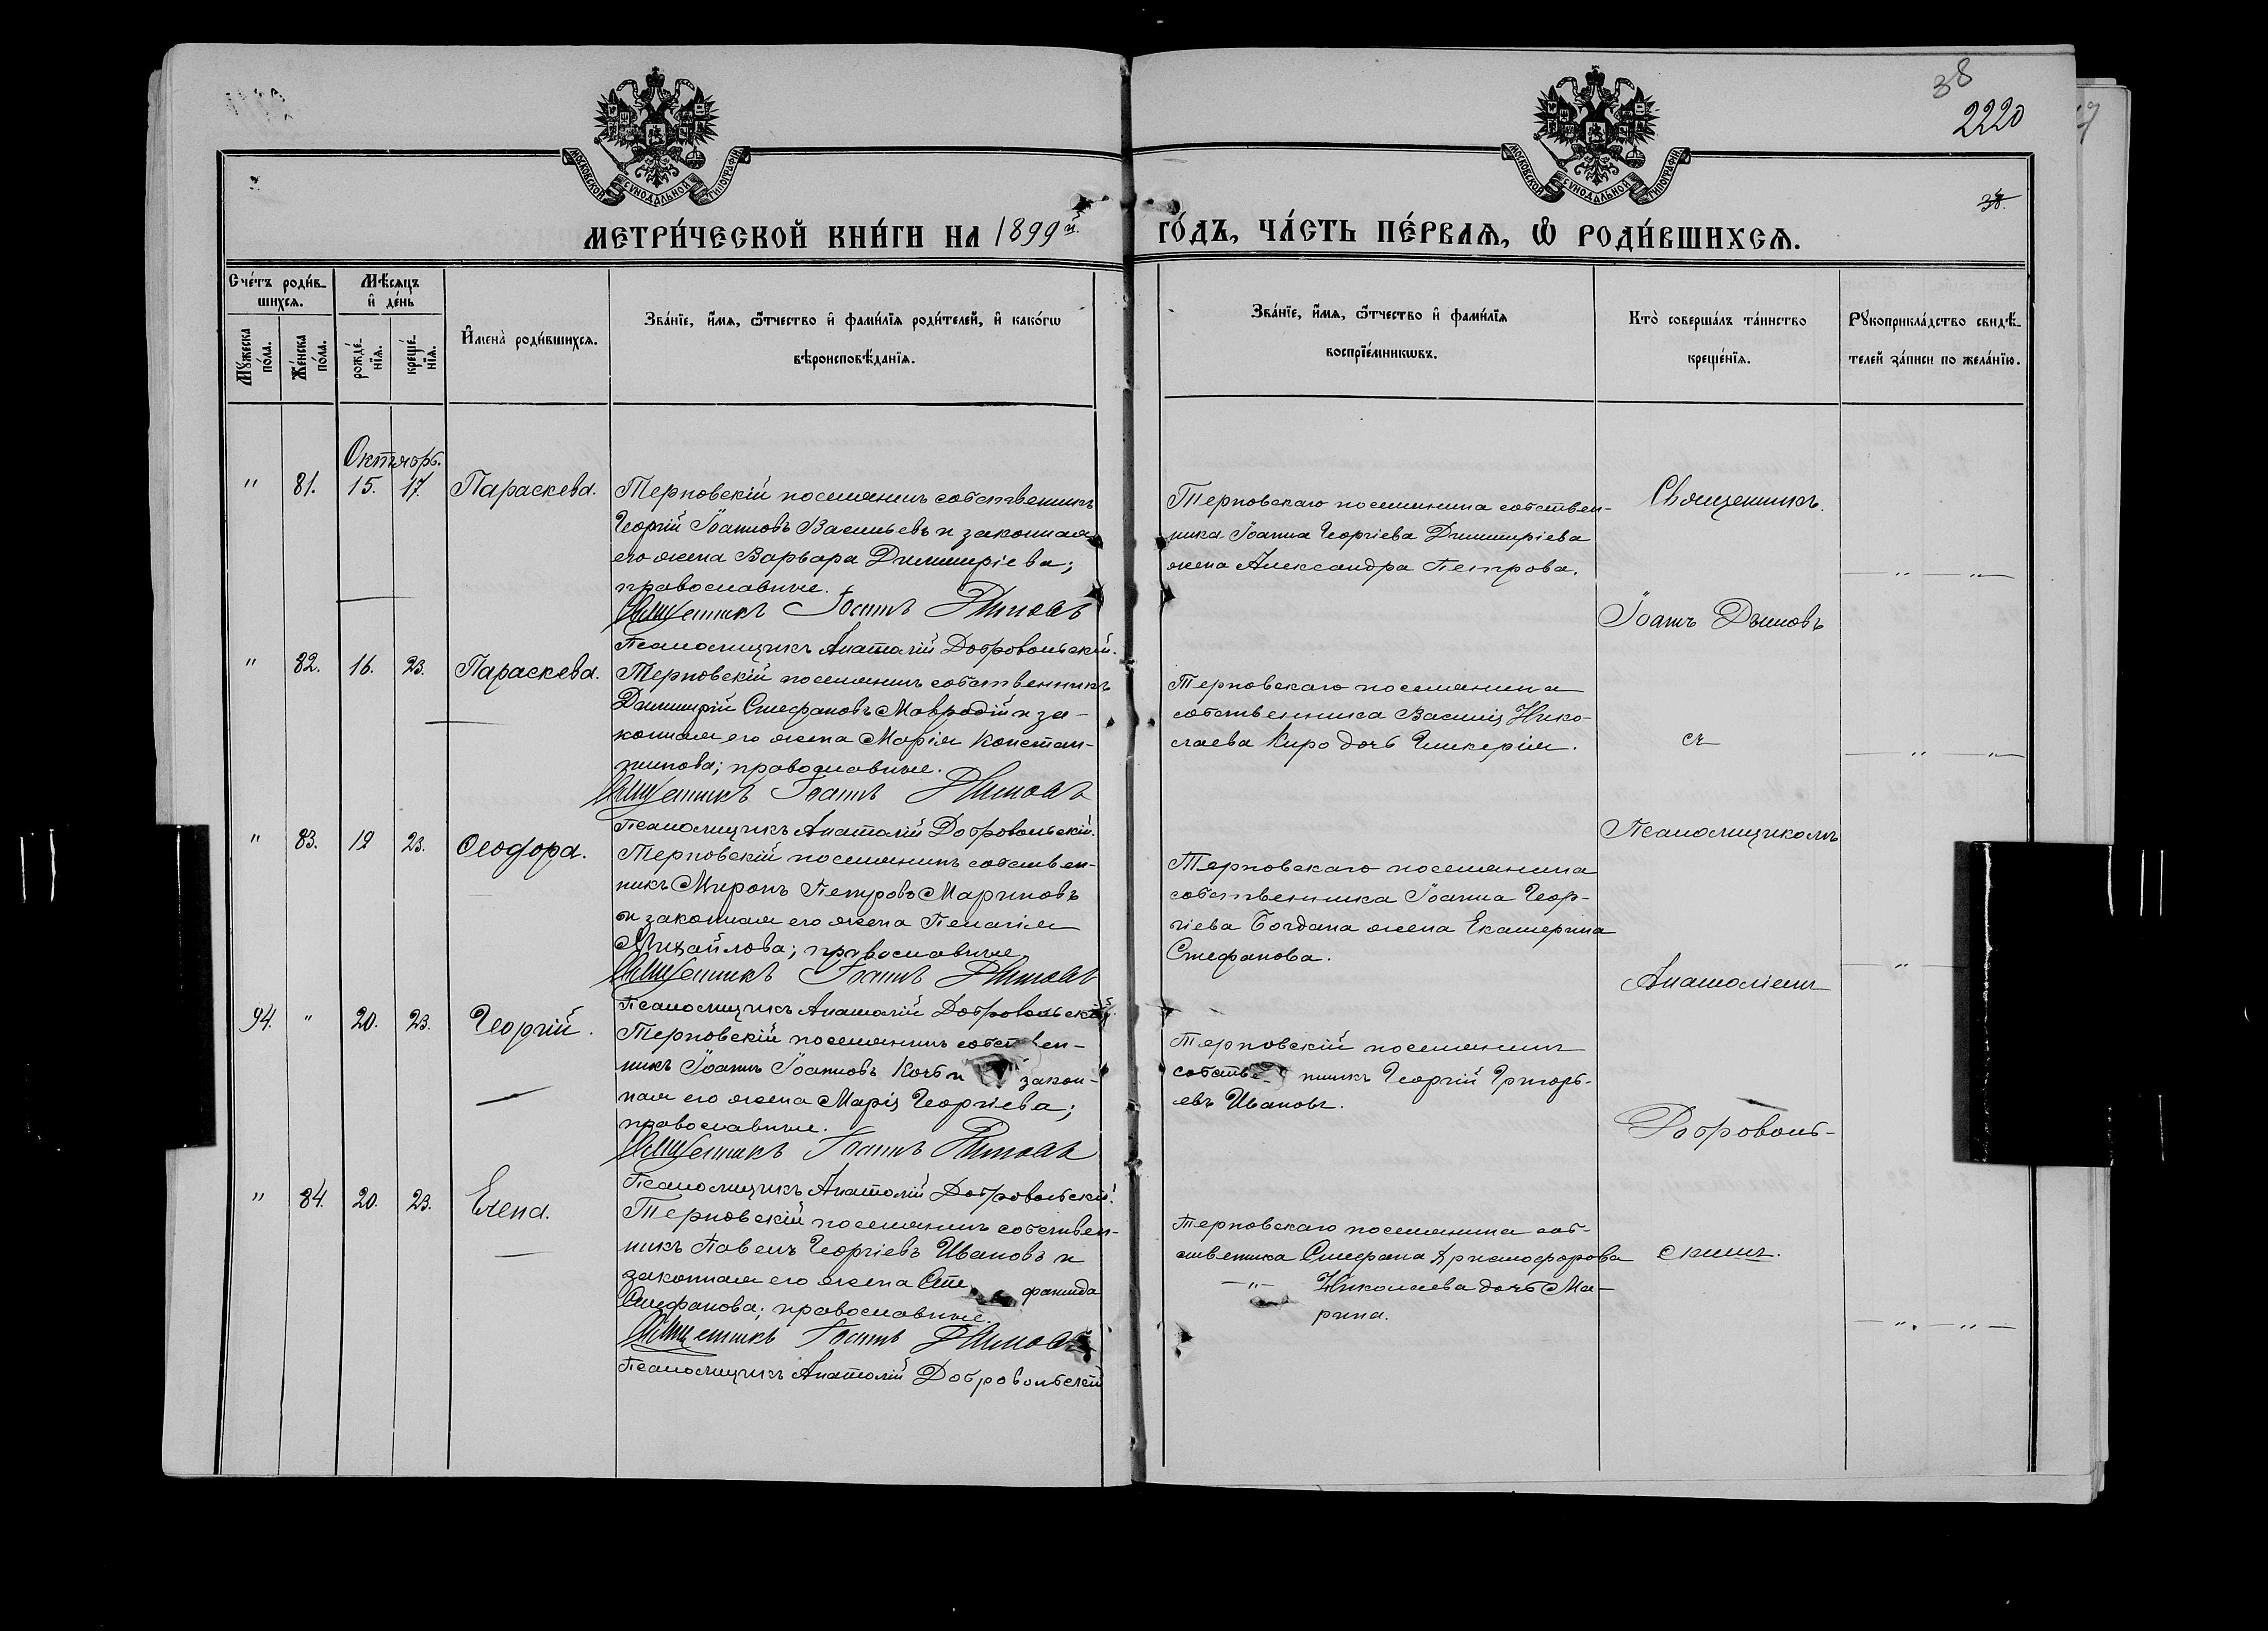 38
2220
38.
МОСКОВСКОЙ СѴНОДАЛЬНОЙ ТИПОГРАФІИ
МОСКОВСКОЙ СѴНОДАЛЬНОЙ ТИПОГРАФІИ
МЕТРИ́ЧЕСКОЙ КНИ́ГИ НА 1899й. ГО́ДЪ, ЧА́СТЬ ПЕ́РВАѦ, Ѡ РОДИ́ВШИХСѦ.
Сче́тъ роди́в-
шихсѧ.
Мꙋ́жеска по́ла.
Же́нска по́ла.
Мѣ́сѧцъ
и де́нь
рожде́-
нїѧ.
креще́-
нїѧ.
И҆мена̀ роди́вшихсѧ.
Зва́нїе, и҆́мѧ, ѻ҆́тчество и҆ фами́лїѧ роди́телей, и҆ како́гѡ
вѣроисповѣ́данїѧ.
Зва́нїе, и҆́мѧ, ѻ҆́тчество и҆ фами́лїѧ
воспрїе́мникѡвъ.
Кто̀ соверша́лъ та́инство
креще́нїѧ.
Рꙋкоприкла́дство свидѣ́-
телей за́писи по жела́нїю.
Октябрь.
" 81. 15. 17. Параскева.
Терновскій поселянинъ собственникъ
Георгій Іоанновъ Васильевъ и законная
его жена Варвара Димитріева;
православные.
Священникъ Іоаннъ Дымовъ
Псаломщикъ Анатолій Добровольскій.
Терновскаго поселянина собствен-
ника Іоанна Георгіева Димитріева
жена Александра Петрова.
Священникъ
Іоаннъ Дымовъ
" 82. 16. 23. Параскева.
Терновскій поселянинъ собственникъ
Димитрій Стефановъ Мавродій и за-
конная его жена Марія Констан-
тинова; православные.
Священникъ Іоаннъ Дымовъ
Псаломщикъ Анатолій Добровольскій.
Терновскаго поселянина
собственника Василія Нико-
лаева Киро дочь Гликерія.
съ
" 83. 19 23. Ѳеодора.
Терновскій поселянинъ собствен-
никъ Миронъ Петровъ Мариновъ
и законная его жена Пелагія
Михайлова; православные
Священникъ Іоаннъ Дымовъ
Псаломщикъ Анатолій Добровольскій.
Терновскаго поселянина
собственника Іоанна Геор-
гіева Богдана жена Екатерина
Стефанова.
Псаломщикомъ
Анатоліемъ
94. " 20. 23. Георгій.
Терновскій поселянинъ собствен-
никъ Іоаннъ Іоанновъ Кочь и закон-
ная его жена Марія Георгіева;
православные.
Священникъ Іоаннъ Дымовъ
Псаломщикъ Анатолій Добровольскій.
Терновскій поселянинъ
собстве- нникъ Георгій Григорь-
евъ Ивановъ.
Доброволь-
" 84. 20. 23. Елена.
Терновскій поселянинъ собствен-
никъ Павелъ Георгіевъ Ивановъ и
законная его жена Сте фанида
Стефанова; православные.
Священникъ Іоаннъ Дымовъ
Псаломщикъ Анатолій Добровольскій
Терновскаго поселянина соб-
ственника Стефана Христофорова
—"— Николаева дочь Ма-
рина.
скимъ.